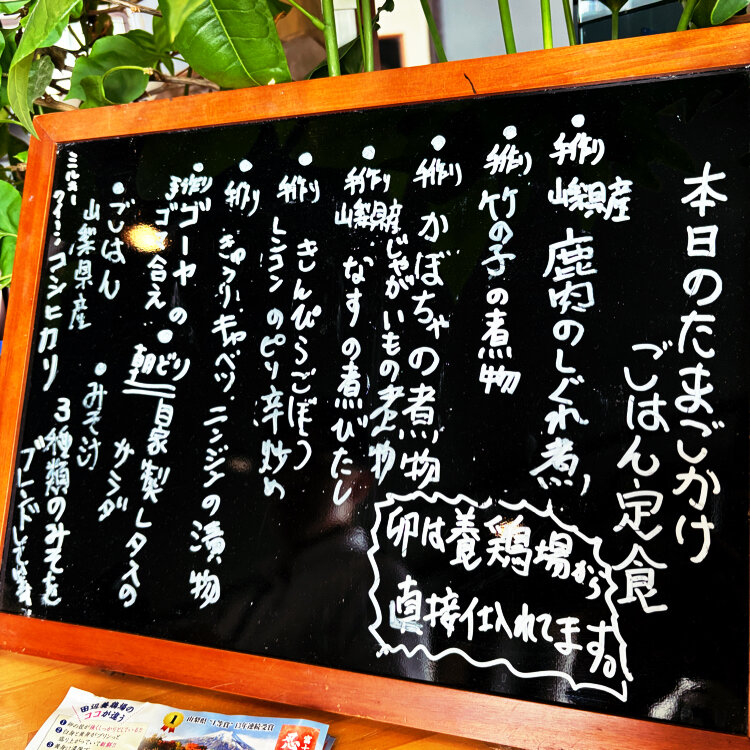 本日のたまごかけ
ごはん定食
・手作り
山梨県産
鹿肉のしぐれ煮
・手作り
竹の子の煮物
・手作り
かぼちゃの煮物
じゃがいもの煮物
・手作り
山梨県産
なすの煮びたし
・手作り
きんぴらごぼう
レンコンのピリ辛炒め
・手作り
きゅうり、キャベツ、ニンジンの漬物
・手作り
ゴーヤの
ゴマ合え
・朝どり
自家製レタスの
サラダ
・ごはん
山梨県産
ミルキー
クイーン コシヒカリ
・みそ汁
3種類のみそを
卵は養鶏場から
直接仕入れてます。
田辺養鶏場の
ココが違う
山梨県"1等賞"11年連続受賞